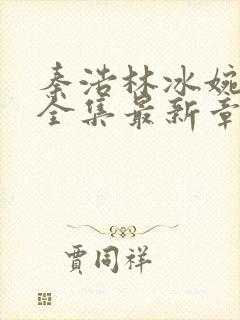 秦浩林冰婉
全集最新章
贾同祥